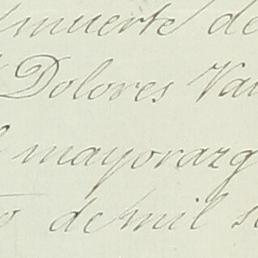 muerte de
Dolores Va
mayorazg
to de mil s